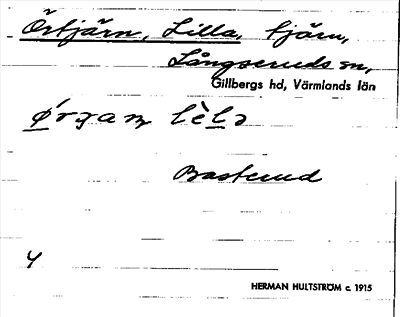 Örtjärn, Lilla, tjärn,
Långseruds sn,
Gillbergs hd, Värmlands län
Basterud
4
HERMAN HULTSTRÖM c. 1915